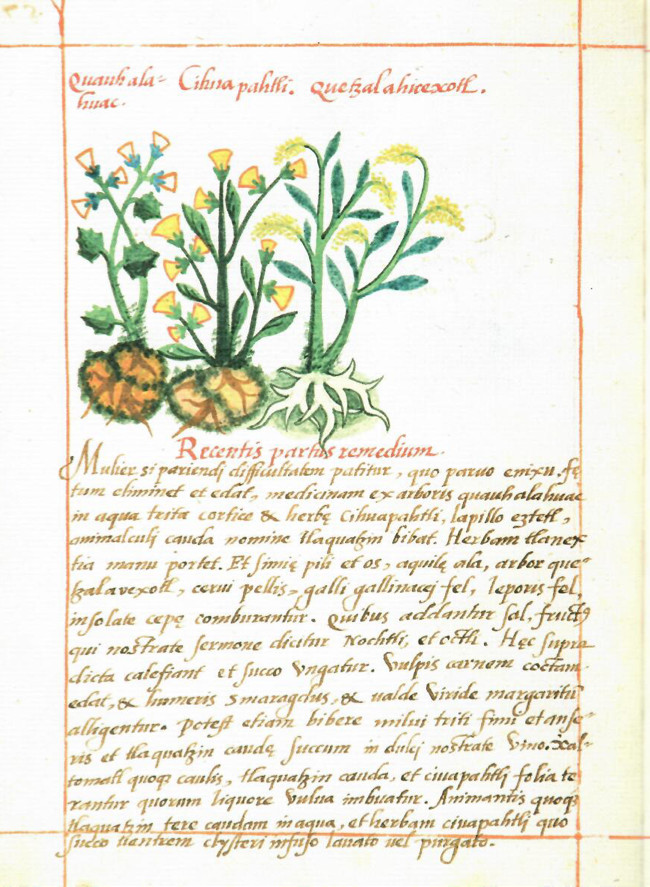 Quauhala= Cihuapahtli. Quetzalahuexotl.
huac.
Recentis partus remedium.
Mulier si pariendj difficultatem patitur, quo paruo enixu fę
tum eliminet et edat, medicinam ex arboris quauhalahuac
in aqua tritę cortice & herbę Cihuapahtli, lapillo eztetl,
animalculj cauda nomine tlaquatzin bibat. Herbam tlanex
tia manu portet. Et simię pili et os, aquilę ala, arbor que=
tzalavexotl, cervi pellis, galli gallinacej fel, leporis fel,
insolate cepę comburantur. Quibus addantur sal, fructꝰ
qui nostrate sermone dicitur Nochtli, et octli. Hęc supra
dicta calefiant et succo vngatur. Vulpis carnem coctam
edat, & humeris smaragdus, & valde viride margaritū
alligentur. Potest etiam bibere milui triti fimi et anse=
ris et tlaquatzin caudę succum in dulcj nostrate vino. Xal=
tomatl quoqꝫ caulis, tlaquatzin cauda, et civapahtlj folia te
rantur quorum liquore vulua imbuatur. Animantis quoqꝫ
tlaquatzin tere caudam in aqua, et herbam civapahtlj quo
succo ventrem clysteri infuso lauato vel purgato.